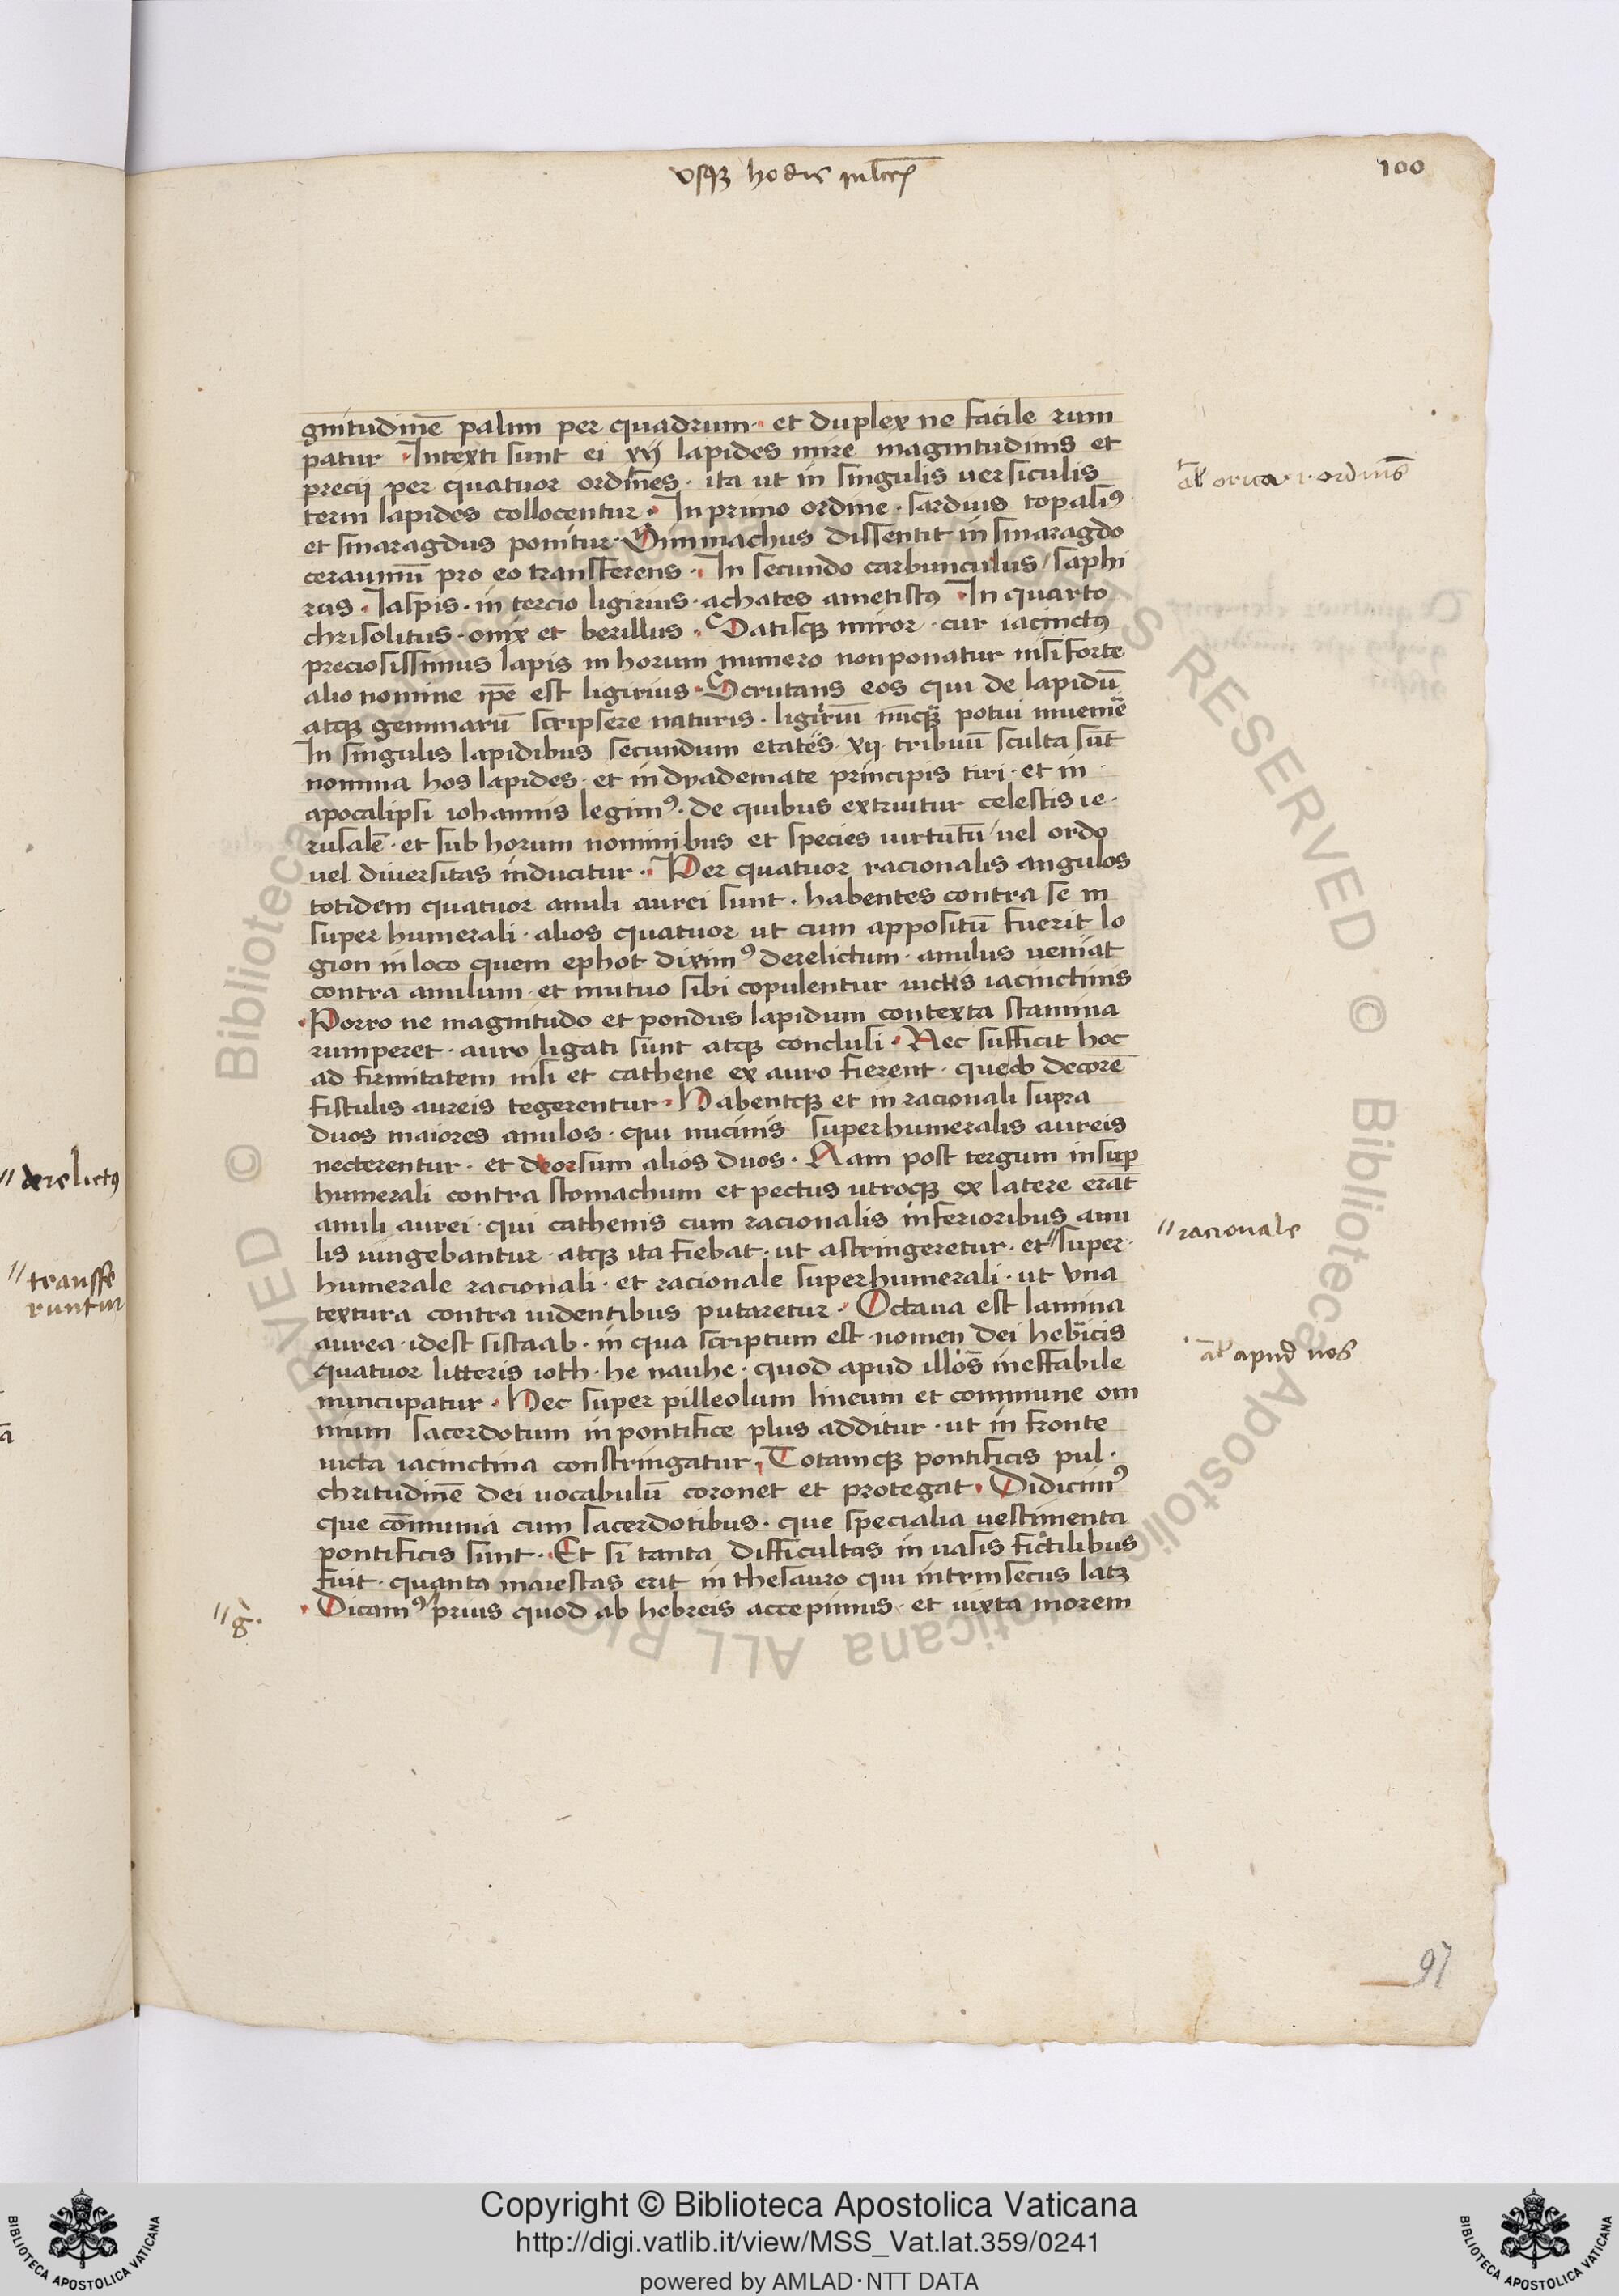 vsqz hodie
100
gnitudinē palmi per quadrum · et duplex ne facile rum
patur · Intexti sunt ei xij lapides mire magnitudinis et
precij per quatuor ordines · ita ut in singulis versiculis
terni lapides collocentur · In primo ordine · sardius topasi9
et smaragdus ponitur · Simmachus dissentit in smaragdo
ceraunnū pro eo transferens · In secundo carbunculus / saphi
rus · Iaspis · in tercio ligirius · achates ametist9 · In quarto
chrisolitus · onix et berillus · Satisqz miror · cur iacinct9
preciosissimus lapis in horum numero non ponatur nisi forte
alio nomine ip̄e est ligirius · Scrutans eos qui de lapidū
atqz gemmarū scripsere naturis · ligiriū nūcqz potui inuenīe
In singulis lapidibus secundum etates · xij · tribuū sculta sūt
nomina hos lapides · et in dyademate principis tiri · et in
apocalipsi iohannis legim9 · de quibus extruitur celestis ie ·
rusalē · et sub horum nominibus et species uirtutū / uel ordo
uel diuersitas inducitur · Per quatuor racionalis angulos
totidem quatuor anuli aurei sunt · habentes contra se in
super humerali · alios quatuor ut cum appositū fuerit lo
gion in loco quem ephot dixim9 derelictum · anulus veniat
contra anulum · et mutuo sibi copulentur uictis iacinctinis
· Porro ne magnitudo et pondus lapidum contexta stamina
rumperet · auro ligati sunt atqz conclusi · Nec sufficit hoc
ad firmitatem nisi et cathene ex auro fierent · que ob decorē
fistulis aureis tegerentur · Habentqz et in racionali supra
duos maiores anulos · qui uncinis superhumeralis aureis
necterentur · et deorsum alios duos · Nam post tergum in sup
humerali contra stomachum et pectus utroqz ex latere erāt
anuli aurei · qui cathenis cum racionalis inferioribus anu
lis iungebantur · atqz ita fiebat · ut astringeretur · et // super ·
humerale racionali · et racionale superhumerali · ut vna
textura contra uidentibus putaretur · Octaua est lamina
aurea · idest sistaab · in qua scriptum est · nomen dei hebicis
quatuor litteris ioth · he uauhe · quod apud illos ineffabile
nuncupatur · Hec super pilleolum lineum et commune om
nium sacerdotum in pontifice plus additur · ut in fronte
uicta iacinctina constringatur · Totamqz pontificis pul ·
chritudinē dei uocabulū coronet et protegat · Didicim9
que cōmunia cum sacerdotibus · que specialia uestimenta
pontificis sunt · Et si tanta difficultas in uasis fictilibus
fuit · quanta maiestas erit in thesauro qui intrinsecus latz
· Dicam9 // prius quod ab hebreis accepimus · et iuxta morem
// racionale
al apud nos
// g̀ ·
// derelict9
// transfe
runtur
97
Copyright © Biblioteca Apostolica Vaticana
http://digi.vatlib.it/view/MSS_Vat.lat.359/0241
powered by AMLAD·NTT DATA
BIBLIOTECA APOSTOLICA VATICANA
BIBLIOTECA APOSTOLICA VATICANA